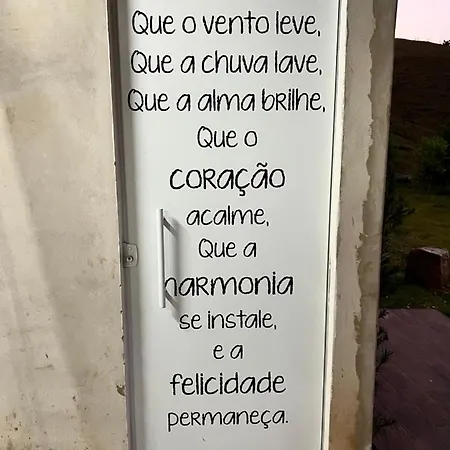 Que o vento leve,
Que a chuva lave,
Que a alma brilhe,
Que o
coração
acalme,
Que a
harmonia
se instale,
e a
felicidade
permaneça.